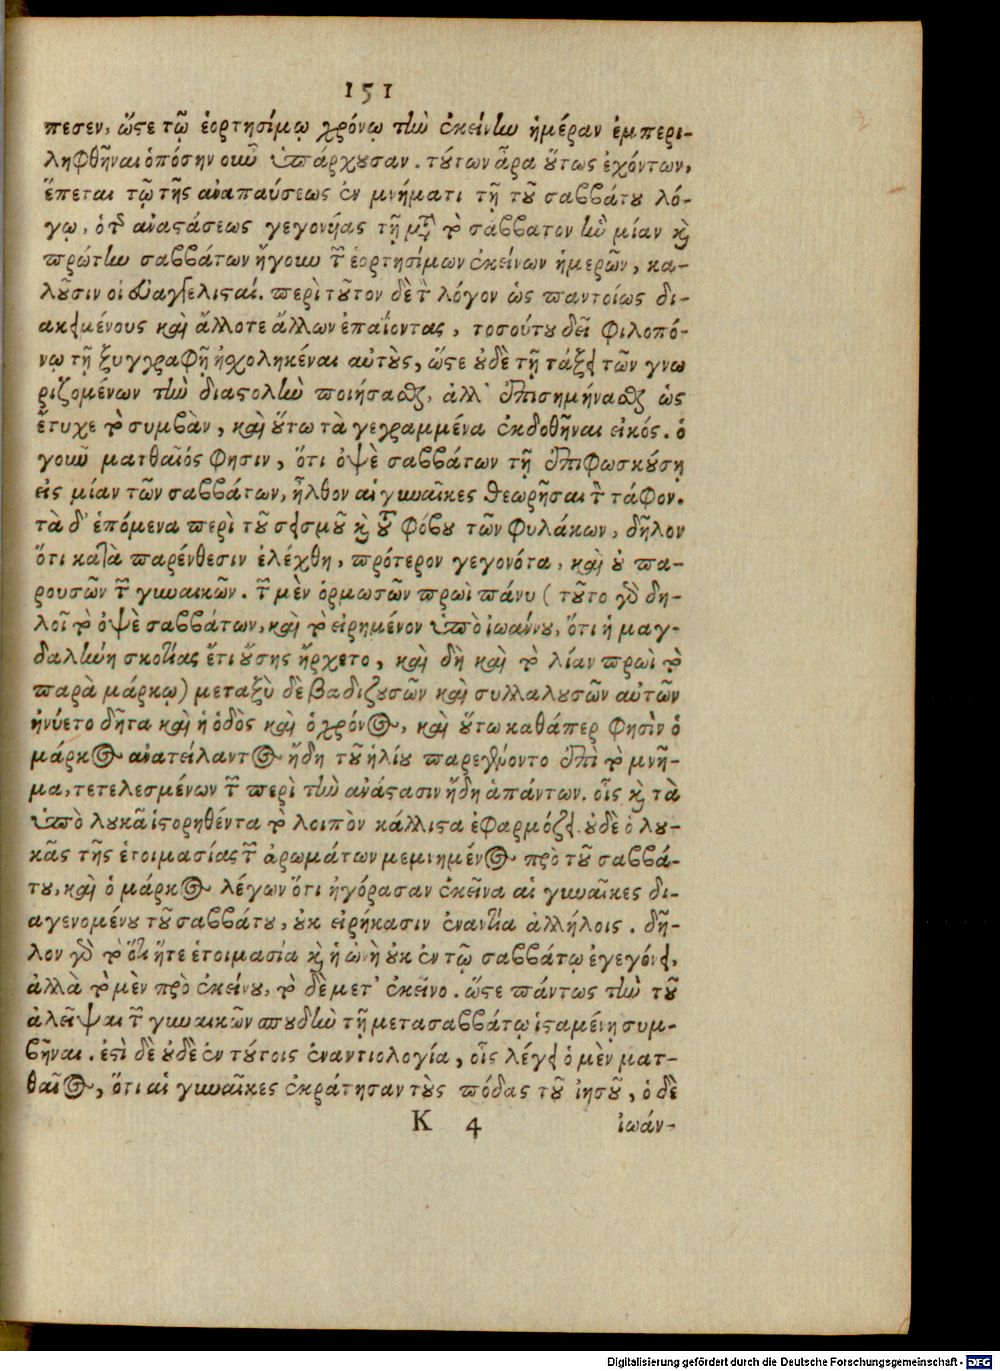 151
πεσεν, ὥστε τῷ ἑορτησίμῳ χρόνῳ τὴν ἐκείνην ἡμέραν ἐμπερι-
ληφθῆναι ὁπόσην οὖν ὑπάρχουσαν. τούτων ἄρα οὕτως ἐχόντων,
ἕπεται τῷ τῆς ἀναπαύσεως ἐν μνήματι τῇ τοῦ σαββάτου λό-
γῳ, ὁ τῆς ἀναστάσεως γεγονυίας τῇ μετὰ τὸ σάββατον ἣν μίαν καὶ
πρώτην σαββάτων ἤγουν τῶν ἑορτησίμων ἐκείνων ἡμερῶν, κα-
λοῦσιν οἱ εὐαγγελισταί. περὶ τοῦτον δὲ τὸν λόγον ὡς παντοίως δι-
ακειμένους καὶ ἄλλοτε ἄλλων ἐπαΐοντας, τοσούτου δεῖ φιλοπό-
νῳ τῇ ξυγγραφῇ ἠσχοληκέναι αὐτοὺς, ὥστε οὐδὲ τῇ τάξει τῶν γνω
ριζομένων τὴν διαστολὴν ποιήσασθαι, ἀλλ' ἐπισημήνασθαι ὡς
ἔτυχε τὸ συμβὰν, καὶ οὕτω τὰ γεγραμμένα ἐκδοθῆναι εἰκός. ὁ
γοῦν ματθαῖός φησιν, ὅτι ὀψὲ σαββάτων τῇ ἐπιφωσκούσῃ
εἰς μίαν τῶν σαββάτων, ἦλθον αἱ γυναῖκες θεωρῆσαι τὸν τάφον.
τὰ δ' ἑπόμενα περὶ τοῦ σεισμοῦ καὶ τοῦ φόβου τῶν φυλάκων, δῆλον
ὅτι κατὰ παρένθεσιν ἐλέχθη, πρότερον γεγονότα, καὶ οὐ πα-
ρουσῶν τῶν γυναικῶν. τῶν μὲν ὁρμωσῶν πρωὶ πάνυ (τοῦτο γὰρ δη-
λοῖ τὸ ὀψὲ σαββάτων, καὶ τὸ εἰρημένον ὑπὸ ἰωάννου, ὅτι ἡ μαγ-
δαληνὴ σκοτίας ἔτι οὔσης ἤρχετο, καὶ δὴ καὶ τὸ λίαν πρωὶ τὸ
παρὰ μάρκῳ) μεταξὺ δὲ βαδιζουσῶν καὶ συλλαλουσῶν αὐτῶν
ἠνύετο δῆτα καὶ ἡ ὁδὸς καὶ ὁ χρόνος, καὶ οὕτω καθάπερ φησὶν ὁ
μάρκος ἀνατείλαντος ἤδη τοῦ ἡλίου παρεγένοντο ἐπὶ τὸ μνῆ-
μα, τετελεσμένων τῶν περὶ τὴν ἀνάστασιν ἤδη ἁπάντων. οἷς καὶ τὰ
ὑπὸ λουκᾶ ἱστορηθέντα τὸ λοιπὸν κάλλιστα ἐφαρμόζει. οὐδὲ ὁ λου-
κᾶς τῆς ἑτοιμασίας τῶν ἀρωμάτων μεμνημένος πρὸ τοῦ σαββά-
του, καὶ ὁ μάρκος λέγων ὅτι ἠγόρασαν ἐκεῖνα αἱ γυναῖκες δι-
αγενομένου τοῦ σαββάτου, οὐκ εἰρήκασιν ἐναντία ἀλλήλοις. δῆ-
λον γὰρ τὸ ὅτι ἥτε ἑτοιμασία καὶ ἡ ὠνὴ οὐκ ἐν τῷ σαββάτῳ ἐγεγόνει,
ἀλλὰ τὸ μὲν πρὸ ἐκείνου, τὸ δὲ μετ' ἐκεῖνο. ὥστε πάντως τὴν τοῦ
ἀλεῖψαι τῶν γυναικῶν σπουδὴν τῇ μετασαββάτῳ ἱσταμένῃ συμ-
βῆναι. ἐστὶ δὲ οὐδὲ ἐν τούτοις ἐναντιολογία, οἷς λέγει ὁ μὲν ματ-
θαῖος, ὅτι αἱ γυναῖκες ἐκράτησαν τοὺς πόδας τοῦ ἰησοῦ, ὁ δὲ
K 4 ἰωάν-
Digitalisierung gefördert durch die Deutsche Forschungsgemeinschaft - DFG